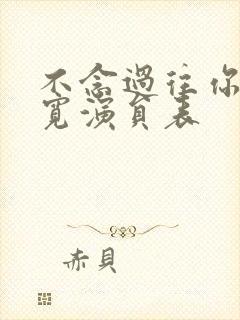 不念過往你
寬演員表
赤貝